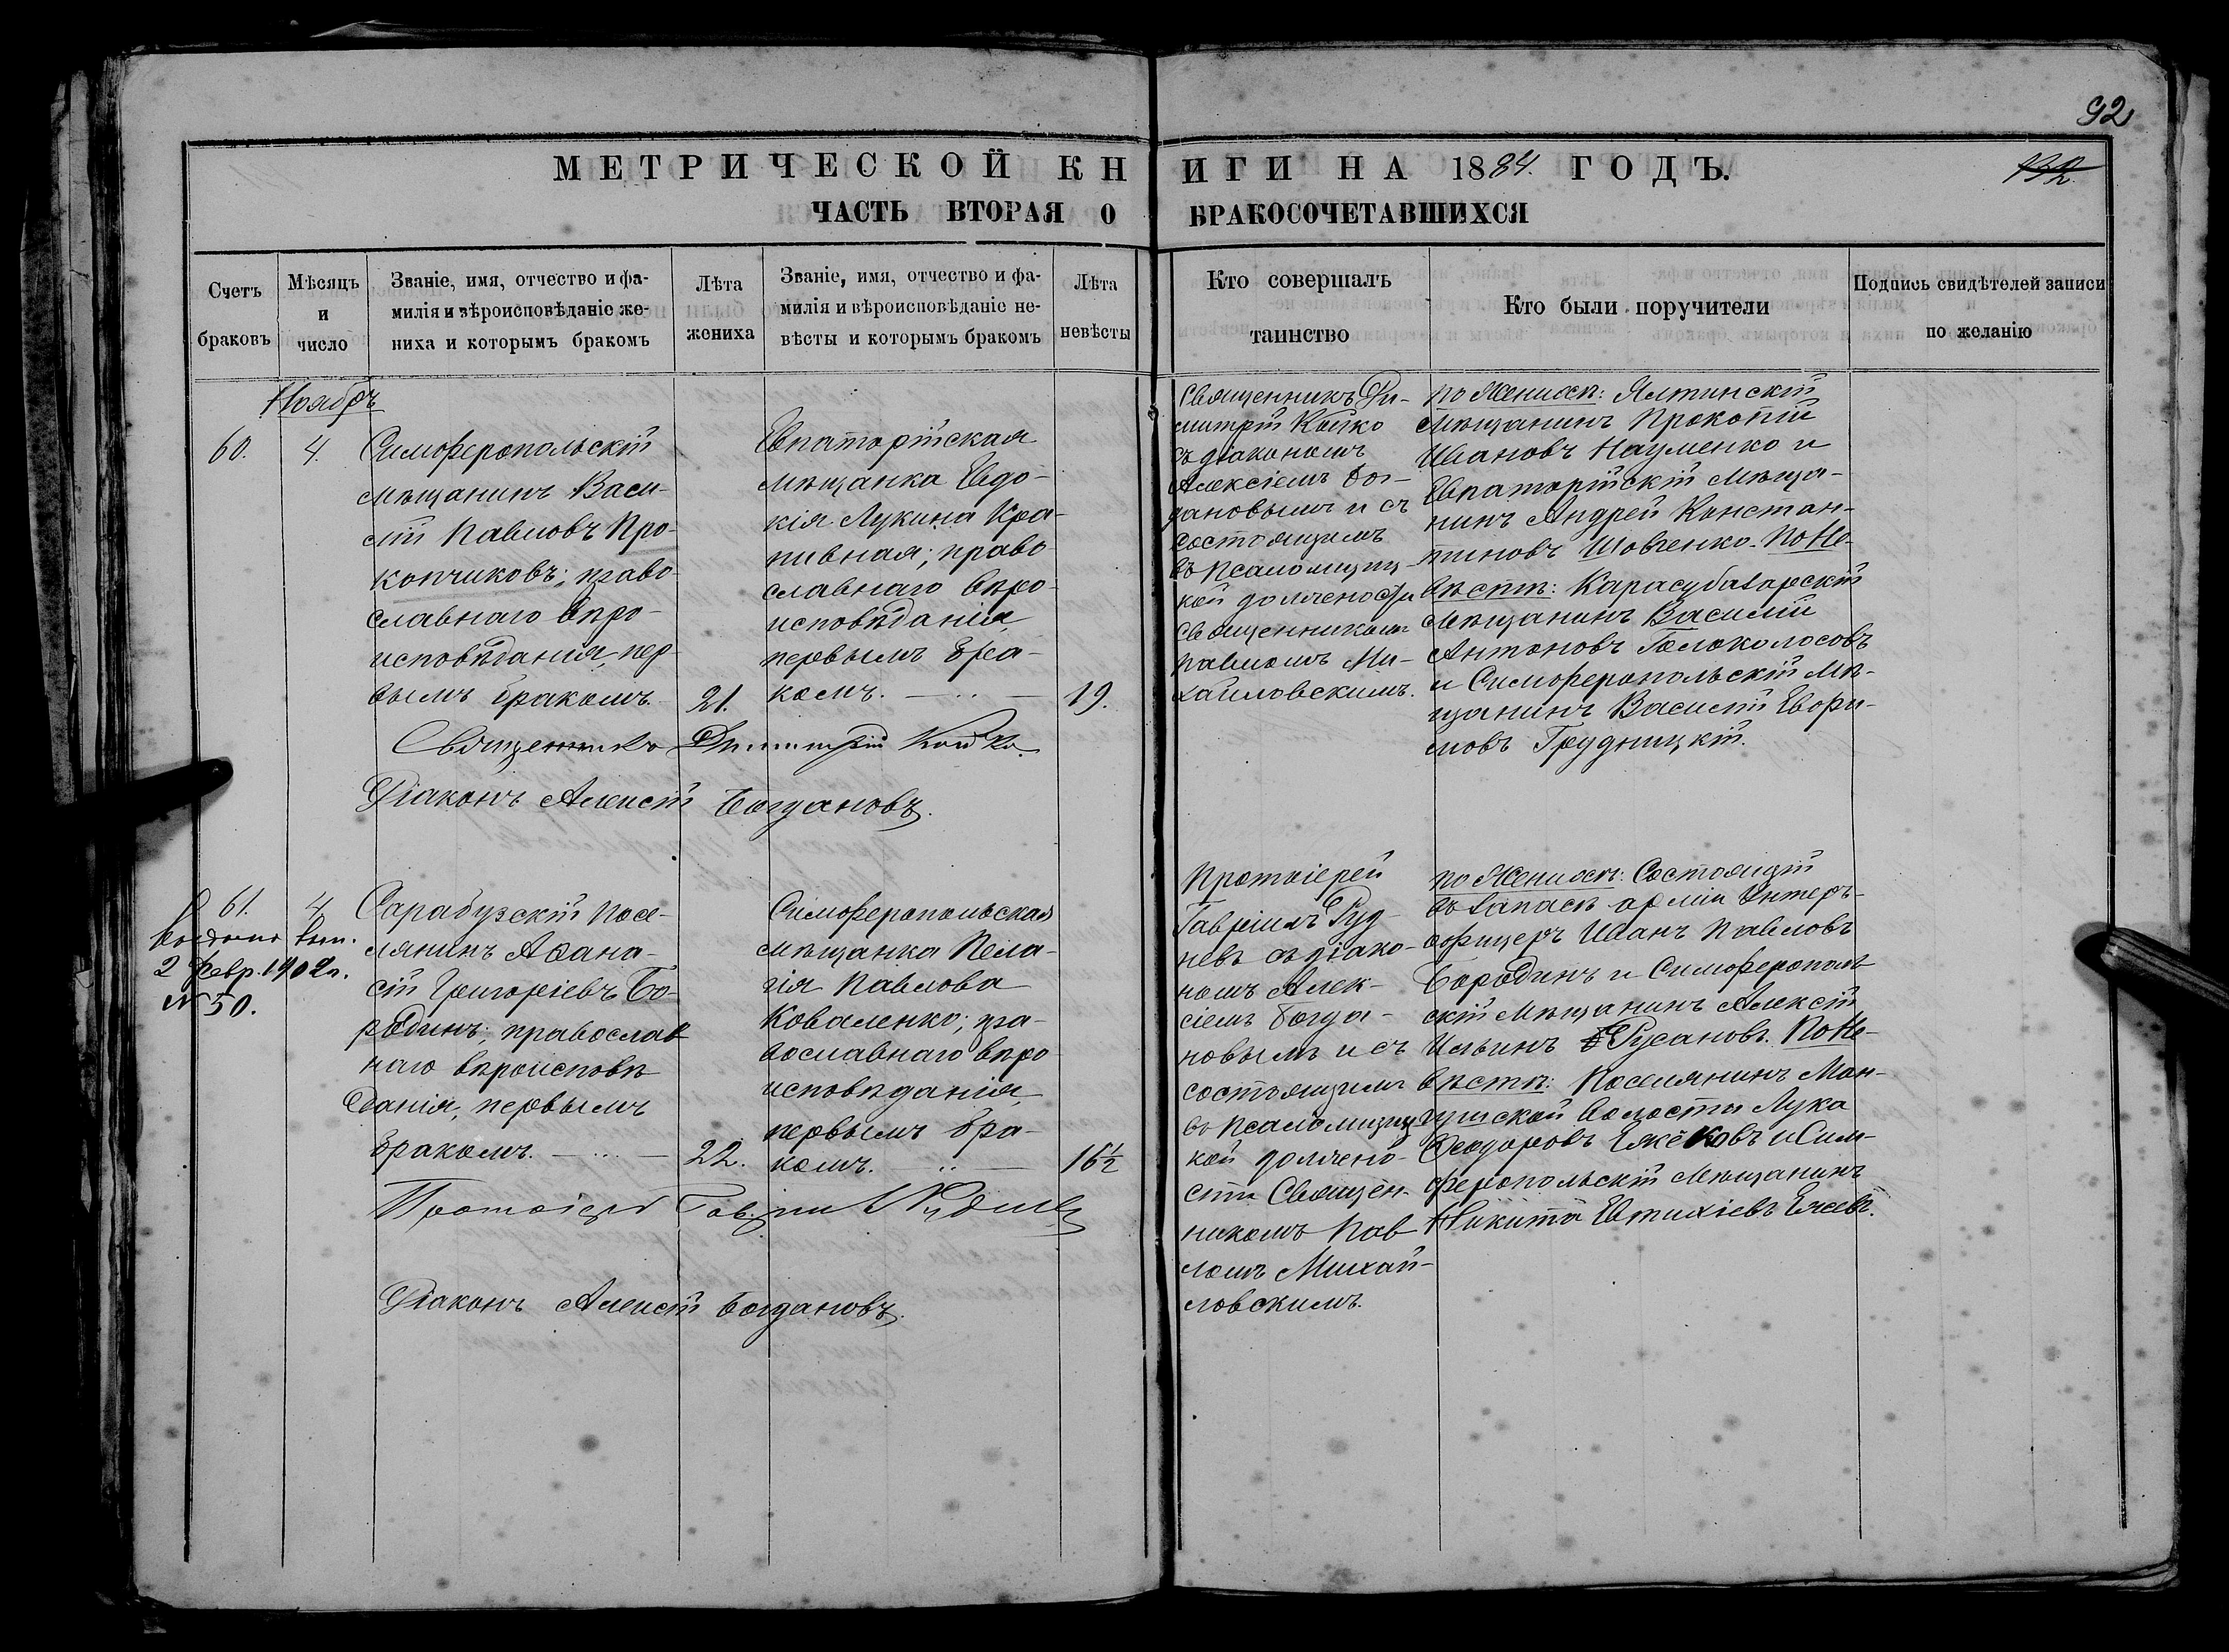 92
МЕТРИЧЕСКОЙ КНИГИ НА 1884. ГОДЪ.
ЧАСТЬ ВТОРАЯ О БРАКОСОЧЕТАВШИХСЯ
Счетъ
браковъ
Мѣсяцъ
и
число
Званіе, имя, отчество и фа-
милія и вѣроисповѣданіе же-
ниха и которымъ бракомъ
Лѣта
жениха
Званіе, имя, отчество и фа-
милія и вѣроисповѣданіе не-
вѣсты и которымъ бракомъ
Лѣта
невѣсты
Кто совершалъ
таинство
Кто были поручители
Подпись свидѣтелей записи
по желанію
Ноябрь
60.
4.
Симферопольскій
мѣщанинъ Васи-
лій Павловъ Про-
копчиковъ; право-
славнаго вѣро-
исповѣданія, пер-
вымъ бракомъ.
21.
Евпаторійская
мѣщанка Евдо-
кія Лукина Кра-
пивная; право-
славнаго вѣро-
исповѣданія,
первымъ бра-
комъ.
19.
Священникъ Ди-
митрій Койко
съ діакономъ
Алексіемъ Бог-
дановымъ и съ
состоящимъ
въ псаломщиц-
кой должности
Священникомъ
Павломъ Ми-
хайловскимъ.
по Женихѣ: Ялтинскій
мѣщанинъ Прокопій
Ивановъ Науменко и
Евпаторійскій мѣща-
нинъ Андрей Констан-
тиновъ Шовченко. По Не-
вѣстѣ: Карасубазарскій
мѣщанинъ Василій
Антоновъ Голоколосовъ
и Симферопольскій мѣ-
щанинъ Василій Евфи-
мовъ Грудницкій.
Священникъ Димитрій Койко
Діаконъ Алексій Богдановъ.
61.
4
2 Февр. 1902 г.
№ 50.
Сарабузскій посе-
лянинъ Аѳана-
сій Григоріевъ Бо-
родинъ; православ
наго вѣроисповѣ
данія, первымъ
бракомъ.
22.
Симферопольская
мѣщанка Пела-
гія Павлова
Коваленко; пра-
вославнаго вѣро
исповѣданія,
первымъ бра-
комъ.
16½
Протоіерей
Гавріилъ Руд-
невъ съ діако-
номъ Алек-
сіемъ Богда-
новымъ и съ
состоящимъ
въ псаломщиц-
кой должно-
сти Священ-
никомъ Пав
ломъ Михай-
ловскимъ.
по Женихѣ: Состоящій
въ запасѣ арміи Унтеръ-
офицеръ Иванъ Павловъ
Бородинъ и Симферополь
скій мѣщанинъ Алексій
Ильинъ Русановъ. По Не-
вѣстѣ: Поселянинъ Ман-
гушской волости Лука
Ѳеодоровъ Ежековъ и Сим-
феропольскій мѣщанинъ
Никита Евтихіевъ
Протоіерей Гавріилъ Рудневъ
Діаконъ Алексій Богдановъ.